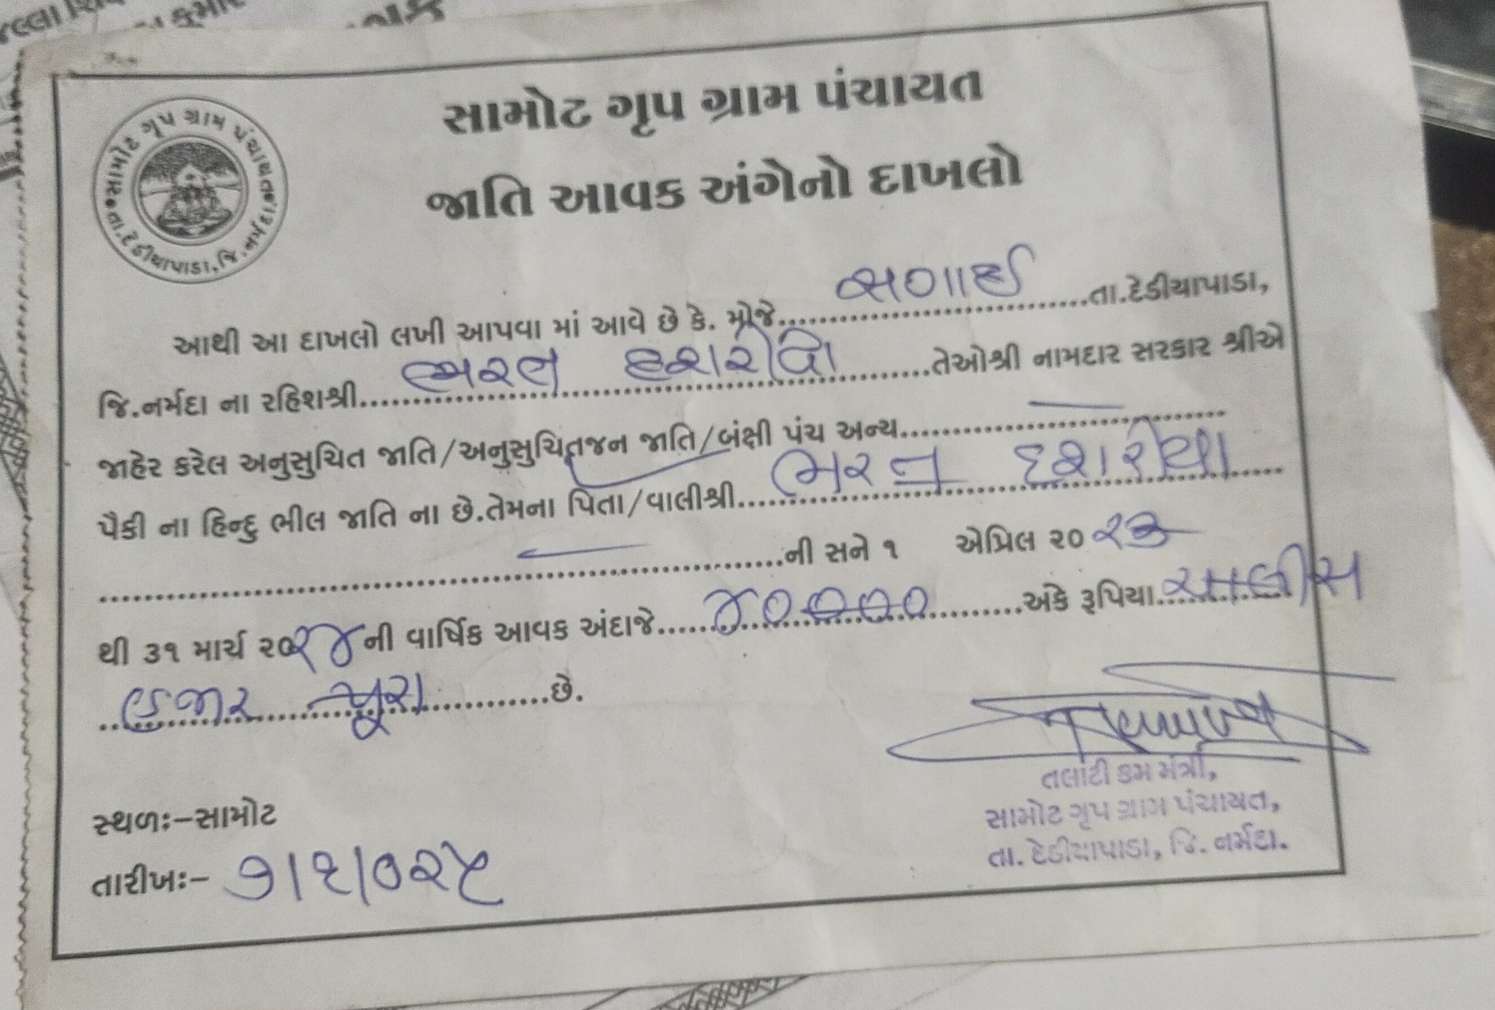 સામોટ ગૃપ ગ્રામ પંચાયત
જાતિ આવક અંગેનો દાખલો
સામોટ ગૃપ ગ્રામ પંચાયત
તા.દેડીયાપાડા, જિ.નર્મદા
આથી આ દાખલો લખી આપવા માં આવે છે કે. મોજે..........તા.દેડીયાપાડા,
જિ.નર્મદા ના રહિશશ્રી..........ભરત..........તેઓશ્રી નામદાર સરકાર શ્રીએ
જાહેર કરેલ અનુસુચિત જાતિ/અનુસુચિતજન જાતિ/બંક્ષી પંચ અન્ય..........
પૈકી ના હિન્દુ ભીલ જાતિ ના છે.તેમના પિતા/વાલીશ્રી..........ભરત..........
..........ની સને ૧ એપ્રિલ ૨૦૨૩
થી ૩૧ માર્ચ ૨૦૨૪ની વાર્ષિક આવક અંદાજે..........૪૦૦૦૦..........અંકે રૂપિયા..ચાલીસ
હજાર પુરા..........છે.
તલાટી કમ મંત્રી,
સ્થળઃ-સામોટ
સામોટ ગૃપ ગ્રામ પંચાયત,
તા. દેડીયાપાડા, જિ. નર્મદા.
તારીખઃ-